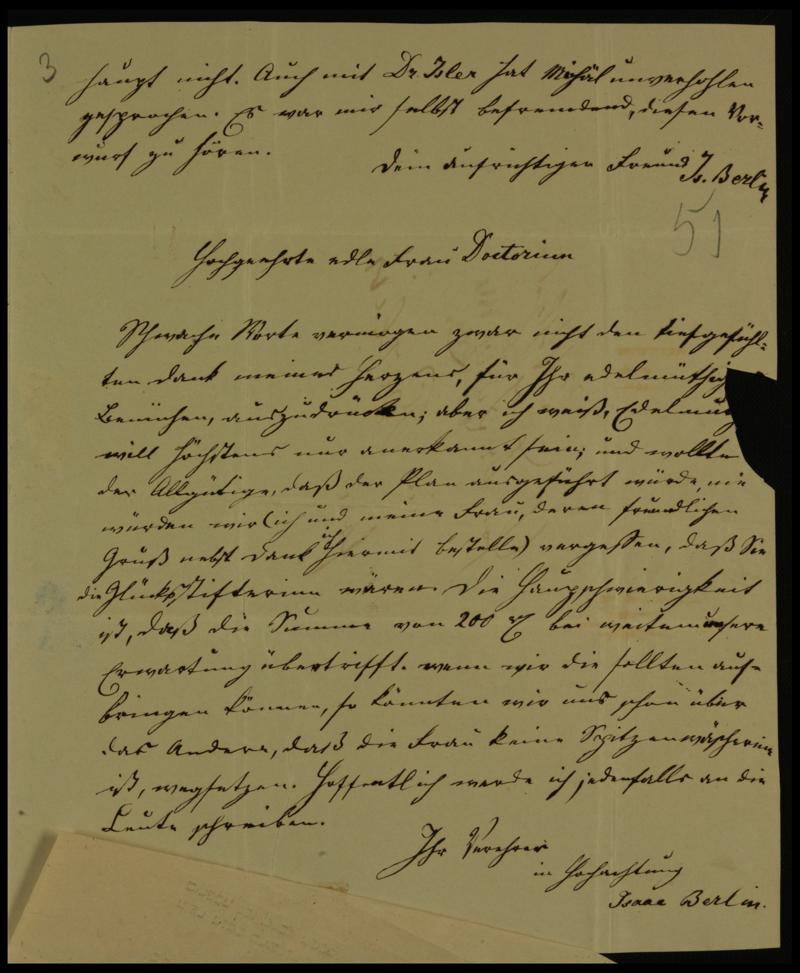 3
haupt nicht. Auch mit Dr. Isler hat Michäl unverhohlen
gesprochen. Es war mir selbst befremdend, diesen Vor-
wurf zu hören.
Dein aufrichtiger Freund Is. Berlin
51
Hochgeehrte edle Frau Doctorinn
Schwache Worte vermögen zwar nicht den tiefgefühl-
ten Dank meines Herzens, für Ihr edelmüthig
Bemühen, auszudrücken; aber ich weiß, Edelmuth
will höchstens nur anerkannt sein; und wollte
der Allgütige, daß der Plan ausgeführt würde, nie
würden wir (ich und meine Frau, deren freundlichen
Gruß nebst Dank ich hiermit bestelle) vergessen, daß Sie
die Glücksstifterinn wären. Die Hauptschwierigkeit
ist, daß die Summe von 200 bei weitem unsere
Erwartung übertrifft. wenn wir die sollten auf-
bringen können, so könnten wir uns schon über
das Andere, daß die Frau keine Spitzenwäscherinn
ist, wegsetzen. Hoffentlich werde ich jedenfalls an die
Leute schreiben.
Ihr Verehrer
in Hochachtung
Isaac Berlin.